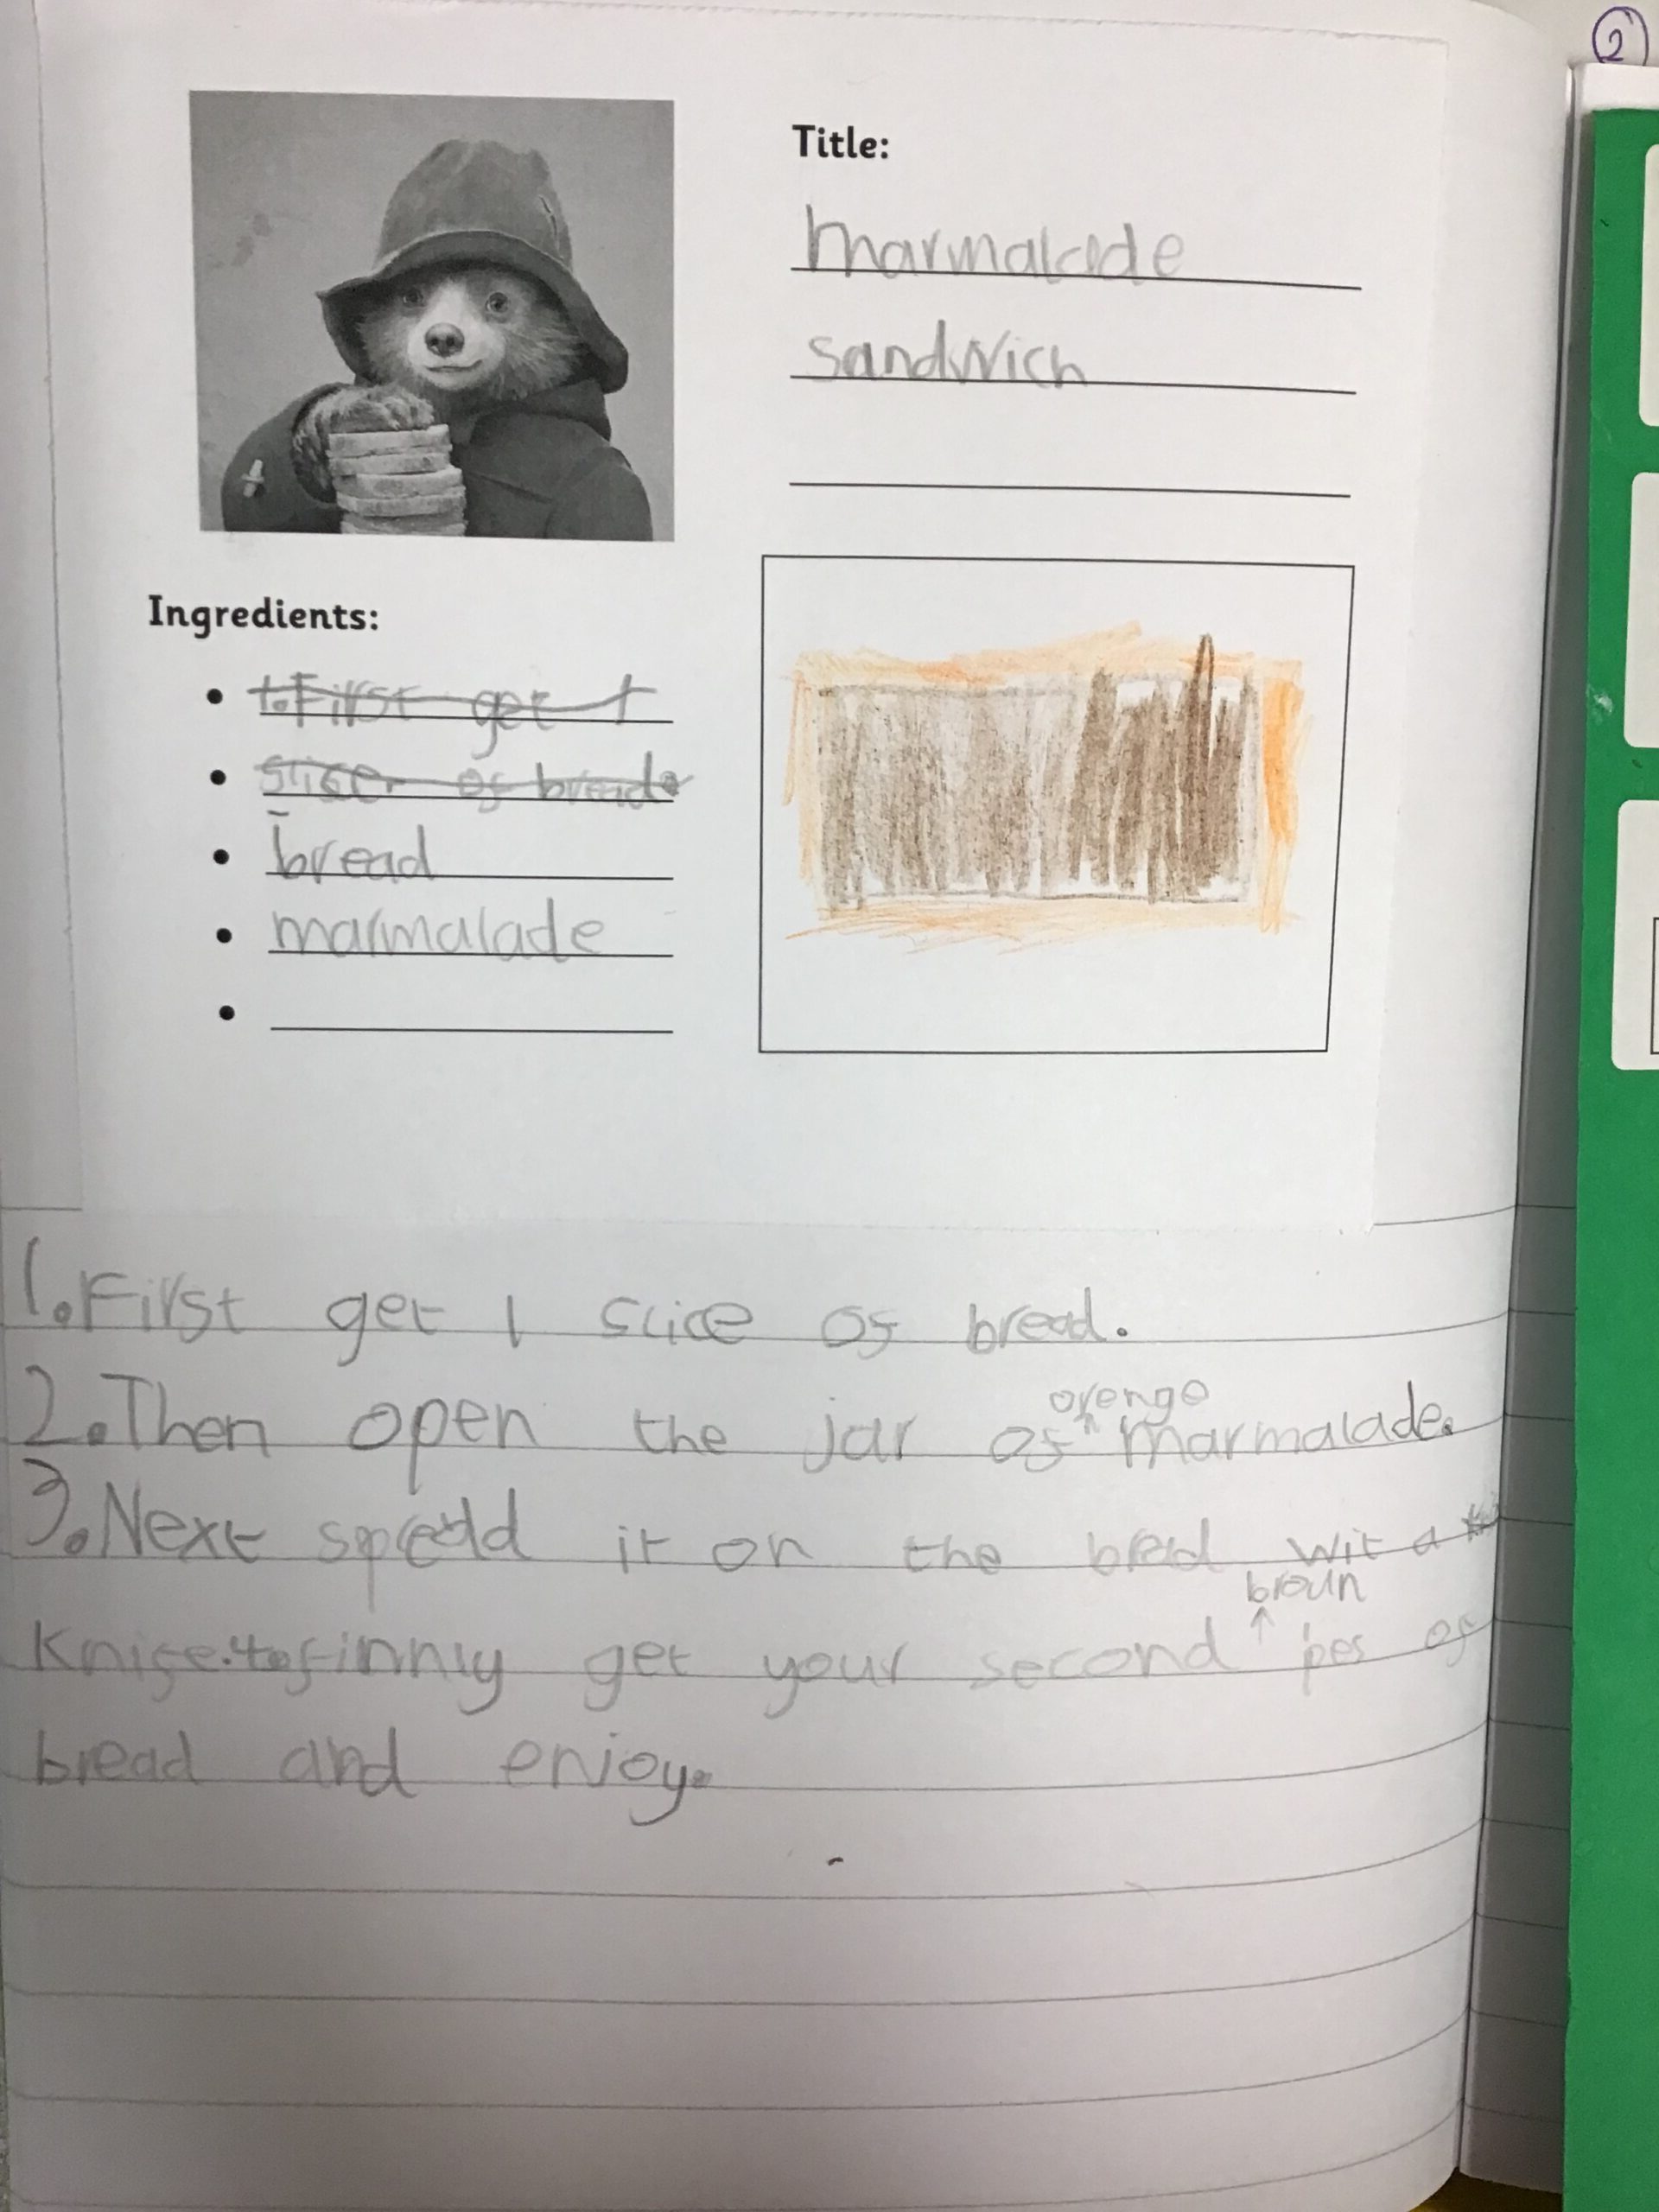 2
Title:
marmalade
sandwich
Ingredients:
1. First get 1
slice of bread.
bread
marmalade
1. First get 1 slice of bread.
orenge
2. Then open the jar of marmalade.
3. Next spread it on the bred wit a
broun
knife. finnly get your second pes of
bread and enjoy.